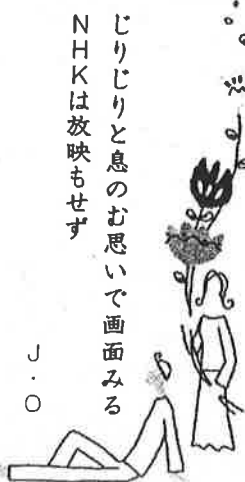 じりじりと息のむ思いで画面みる
NHKは放映もせず
J・O